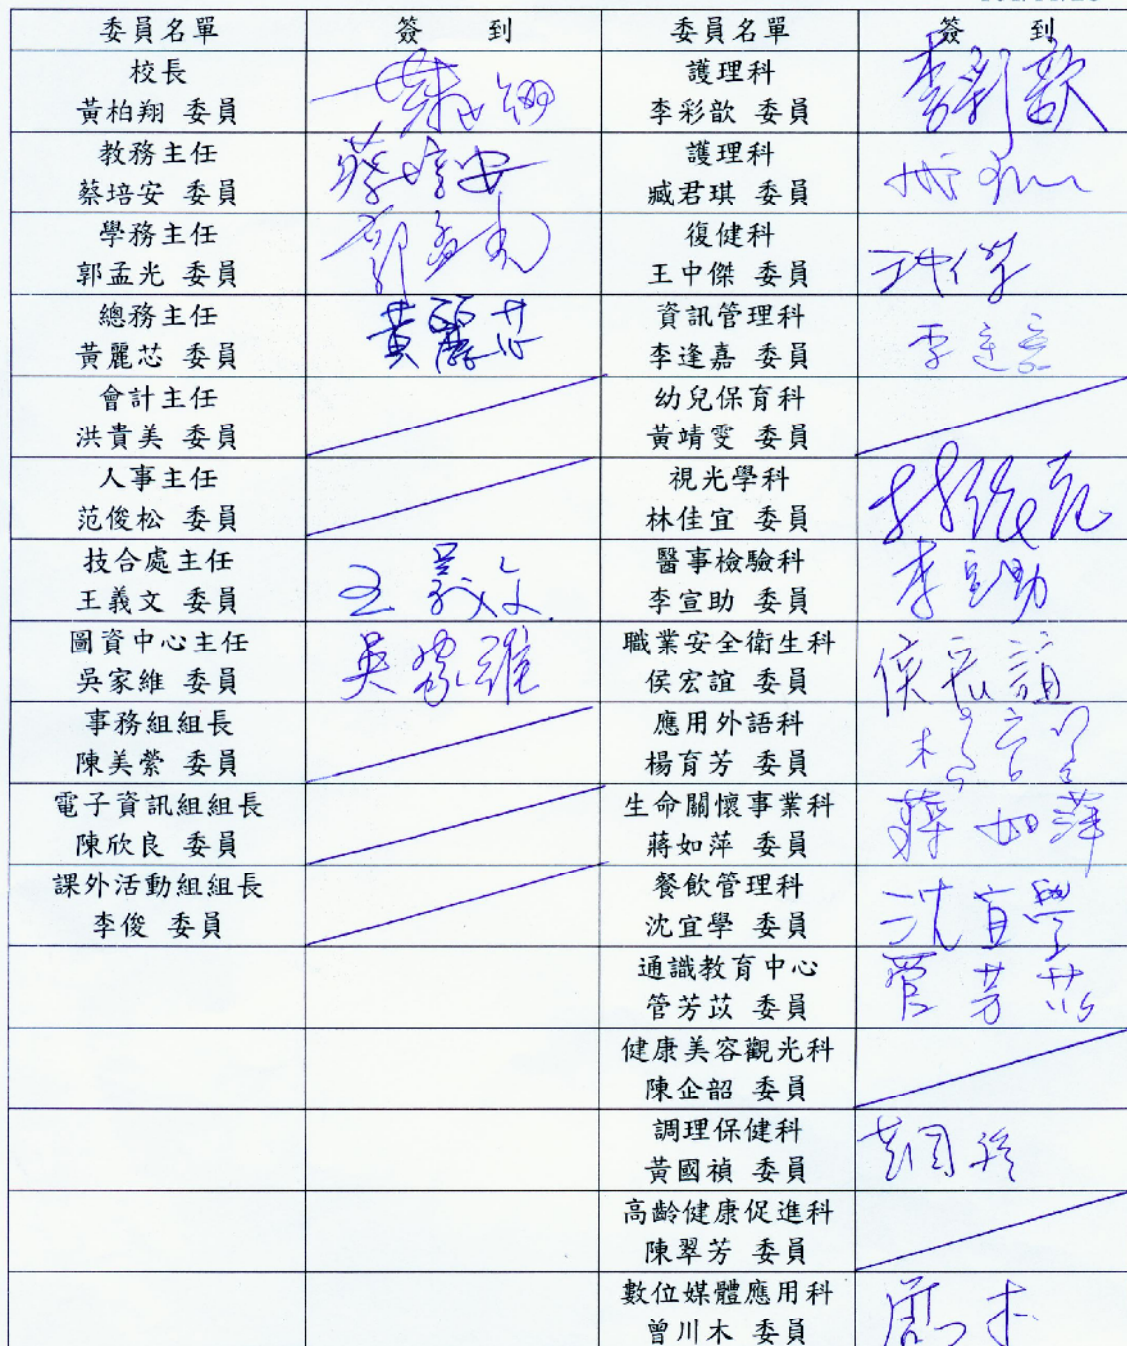 委員名單 簽 到 委員名單 簽 到
校長
黃柏翔 委員
護理科
李彩歆 委員
李彩歆
教務主任
蔡培安 委員
蔡培安
護理科
臧君琪 委員
學務主任
郭孟光 委員
郭孟光
復健科
王中傑 委員
王中傑
總務主任
黃麗芯 委員
黃麗芯
資訊管理科
李逢嘉 委員
李逢嘉
會計主任
洪貴美 委員
幼兒保育科
黃靖雯 委員
人事主任
范俊松 委員
視光學科
林佳宜 委員
林佳宜
技合處主任
王義文 委員
王義文
醫事檢驗科
李宣助 委員
李宣助
圖資中心主任
吳家維 委員
吳家維
職業安全衛生科
侯宏誼 委員
侯宏誼
事務組組長
陳美縈 委員
應用外語科
楊育芳 委員
電子資訊組組長
陳欣良 委員
生命關懷事業科
蔣如萍 委員
蔣如萍
課外活動組組長
李俊 委員
餐飲管理科
沈宜學 委員
沈宜學
通識教育中心
管芳苡 委員
管芳苡
健康美容觀光科
陳企韶 委員
調理保健科
黃國禎 委員
黃國禎
高齡健康促進科
陳翠芳 委員
數位媒體應用科
曾川木 委員